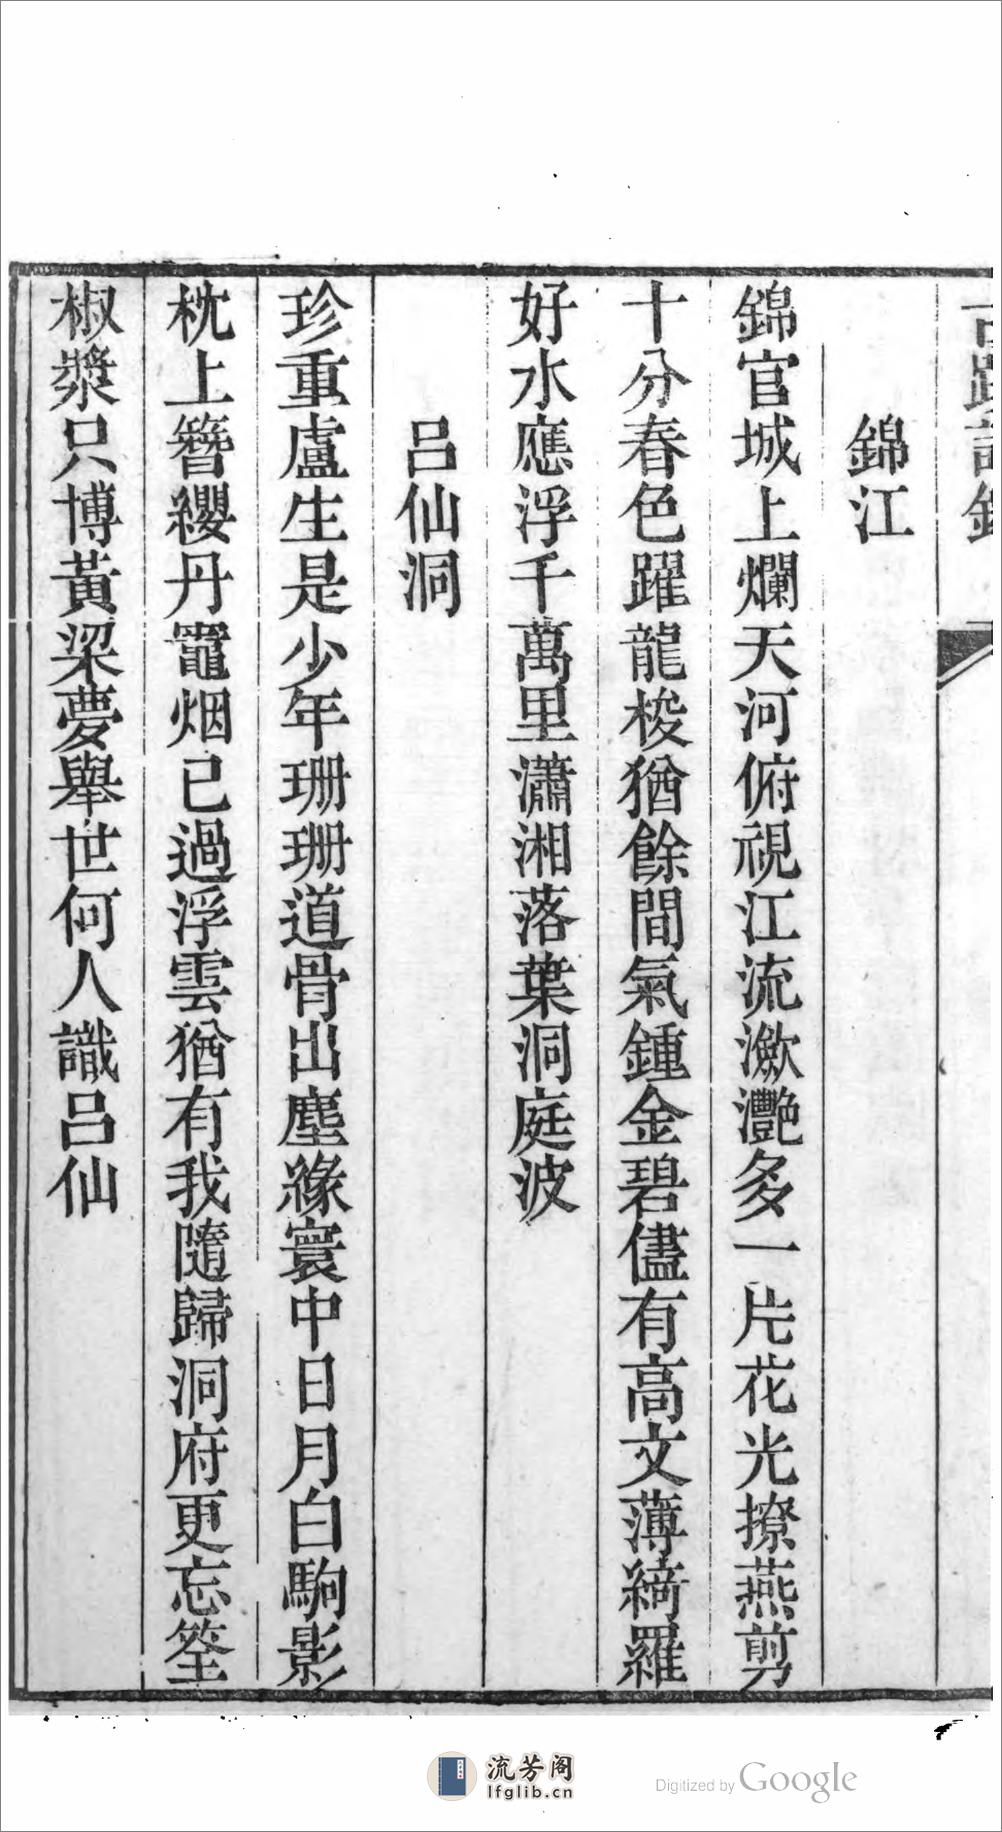 錦江
錦官城上爛天河俯視江流瀲灔多一片花光撩燕剪
十分春色躍龍梭猶餘間氣鍾金碧儘有高文薄綺羅
好水應浮千萬里瀟湘落葉洞庭波
呂仙洞
珍重盧生是少年珊珊道骨出塵緣寰中日月白駒影
枕上簪纓丹竈烟已過浮雲猶有我隨歸洞府更忘筌
椒漿只博黃粱夢舉世何人識呂仙
流芳阁
lfglib.cn
Digitized by Google